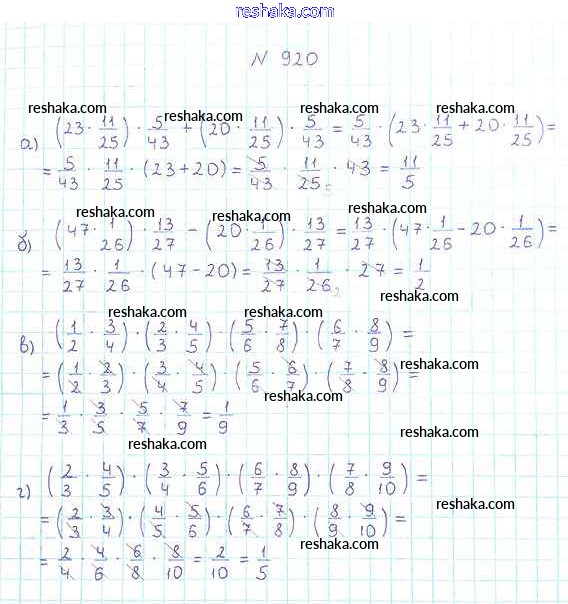 www.reshaka.com
N 920
reshaka.com reshaka.com reshaka.com
а) (23 · 11/25) · 5/43 + (20 · 11/25) · 5/43 = 5/43 · (23 · 11/25 + 20 · 11/25) =
= 5/43 · 11/25 · (23 + 20) = 5/43 · 11/25 5 · 43 = 11/5
reshaka.com reshaka.com reshaka.com
reshaka.com reshaka.com
б) (47 · 1/26) · 13/27 - (20 · 1/26) · 13/27 = 13/27 · (47 · 1/26 - 20 · 1/26) =
= 13/27 · 1/26 · (47 - 20) = 13/27 · 1/26 2 · 27 = 1/2
reshaka.com reshaka.com
reshaka.com
в) (1/2 · 3/4) · (2/3 · 4/5) · (5/6 · 7/8) · (6/7 · 8/9) =
reshaka.com reshaka.com
= (1/2 · 2/3) · (3/4 · 4/5) · (5/6 · 6/7) · (7/8 · 8/9) =
= 1/3 · 3/5 · 5/7 · 7/9 = 1/9
reshaka.com
reshaka.com
reshaka.com
г) (2/3 · 4/5) · (3/4 · 5/6) · (6/7 · 8/9) · (7/8 · 9/10) =
reshaka.com
= (2/3 · 3/4) · (4/5 · 5/6) · (6/7 · 7/8) · (8/9 · 9/10) =
reshaka.com
= 2/4 · 4/6 · 6/8 · 8/10 = 2/10 = 1/5
reshaka.com